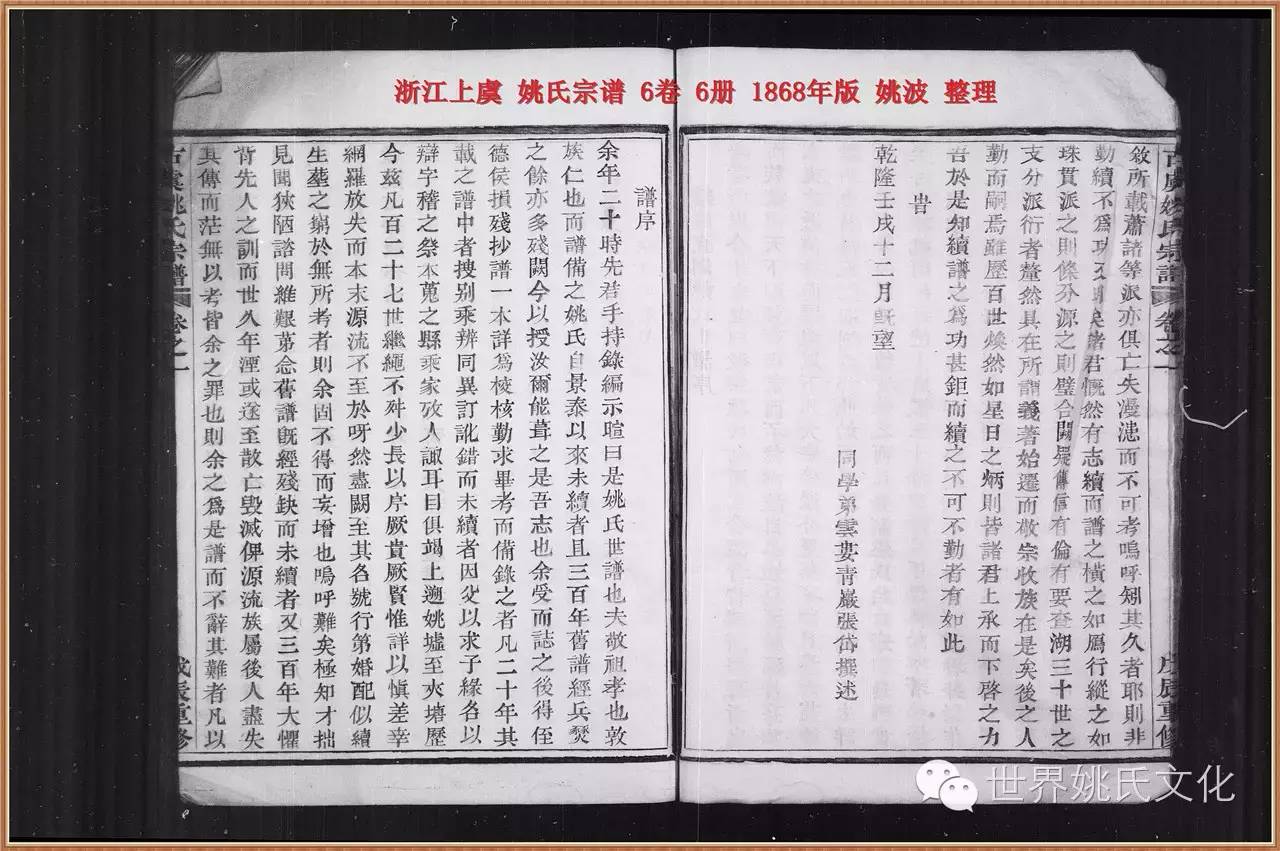 浙江上虞 姚氏宗谱 6卷 6册 1868年版 姚波 整理
古虞姚氏宗譜 卷之一 戊辰重修
敘所載蕭諸等派亦俱亡失漫漶而不可考嗚呼矧其久者耶則非
勳續不為功 矣諸君慨然有志續而譜之橫之如鴈行縱之如
珠貫派之則條分源之則璧合闕疑傳信有倫有要查湖三十世之
支分派衍者釐然具在所謂義著始遷而敬宗收族在是矣後之人
勤而嗣焉雖歷百世煥然如星日之炳則皆諸君上承而下啓之力
吾於是知續譜之為功甚鉅而續之不可不勤者有如此
旹
乾隆壬戌十二月既望
同學弟雲婁青巖張岱撰述
譜序
余年二十時先若手持錄編示暄曰是姚氏世譜也夫敬祖孝也敦
族仁也而譜備之姚氏自景泰以來未續者且三百年舊譜經兵燹
之餘亦多殘闕今以授汝爾能葺之是吾志也余受而誌之後得侄
德侯損殘抄譜一本詳為校核勤求畢考而備錄之者凡二十年其
載之譜中者搜別乘辨同異訂訛錯而未續者因父以求子緣名以
辯字稽之祭本蒐之縣乘家攷人諏耳目俱竭上遡姚墟至夾塘歷
今茲凡百二十七世繼繩不舛少長以序厥貴厥賢惟詳以慎差幸
網羅放失而本末源流不至於呀然盡闕至其名號行第婚配似續
生塟之窮於無所考者則余固不得而妄增也嗚呼難矣極知才拙
見聞狹陋諮問維艱第念舊譜既經殘缺而未續者又三百年大懼
背先人之訓而世久年湮或遂至散亡毀滅俾源流族屬後人盡失
其傳而茫無以考皆余之罪也則余之為是譜而不辭其難者凡以
古虞姚氏宗譜 卷之一 戊辰重修
世界姚氏文化